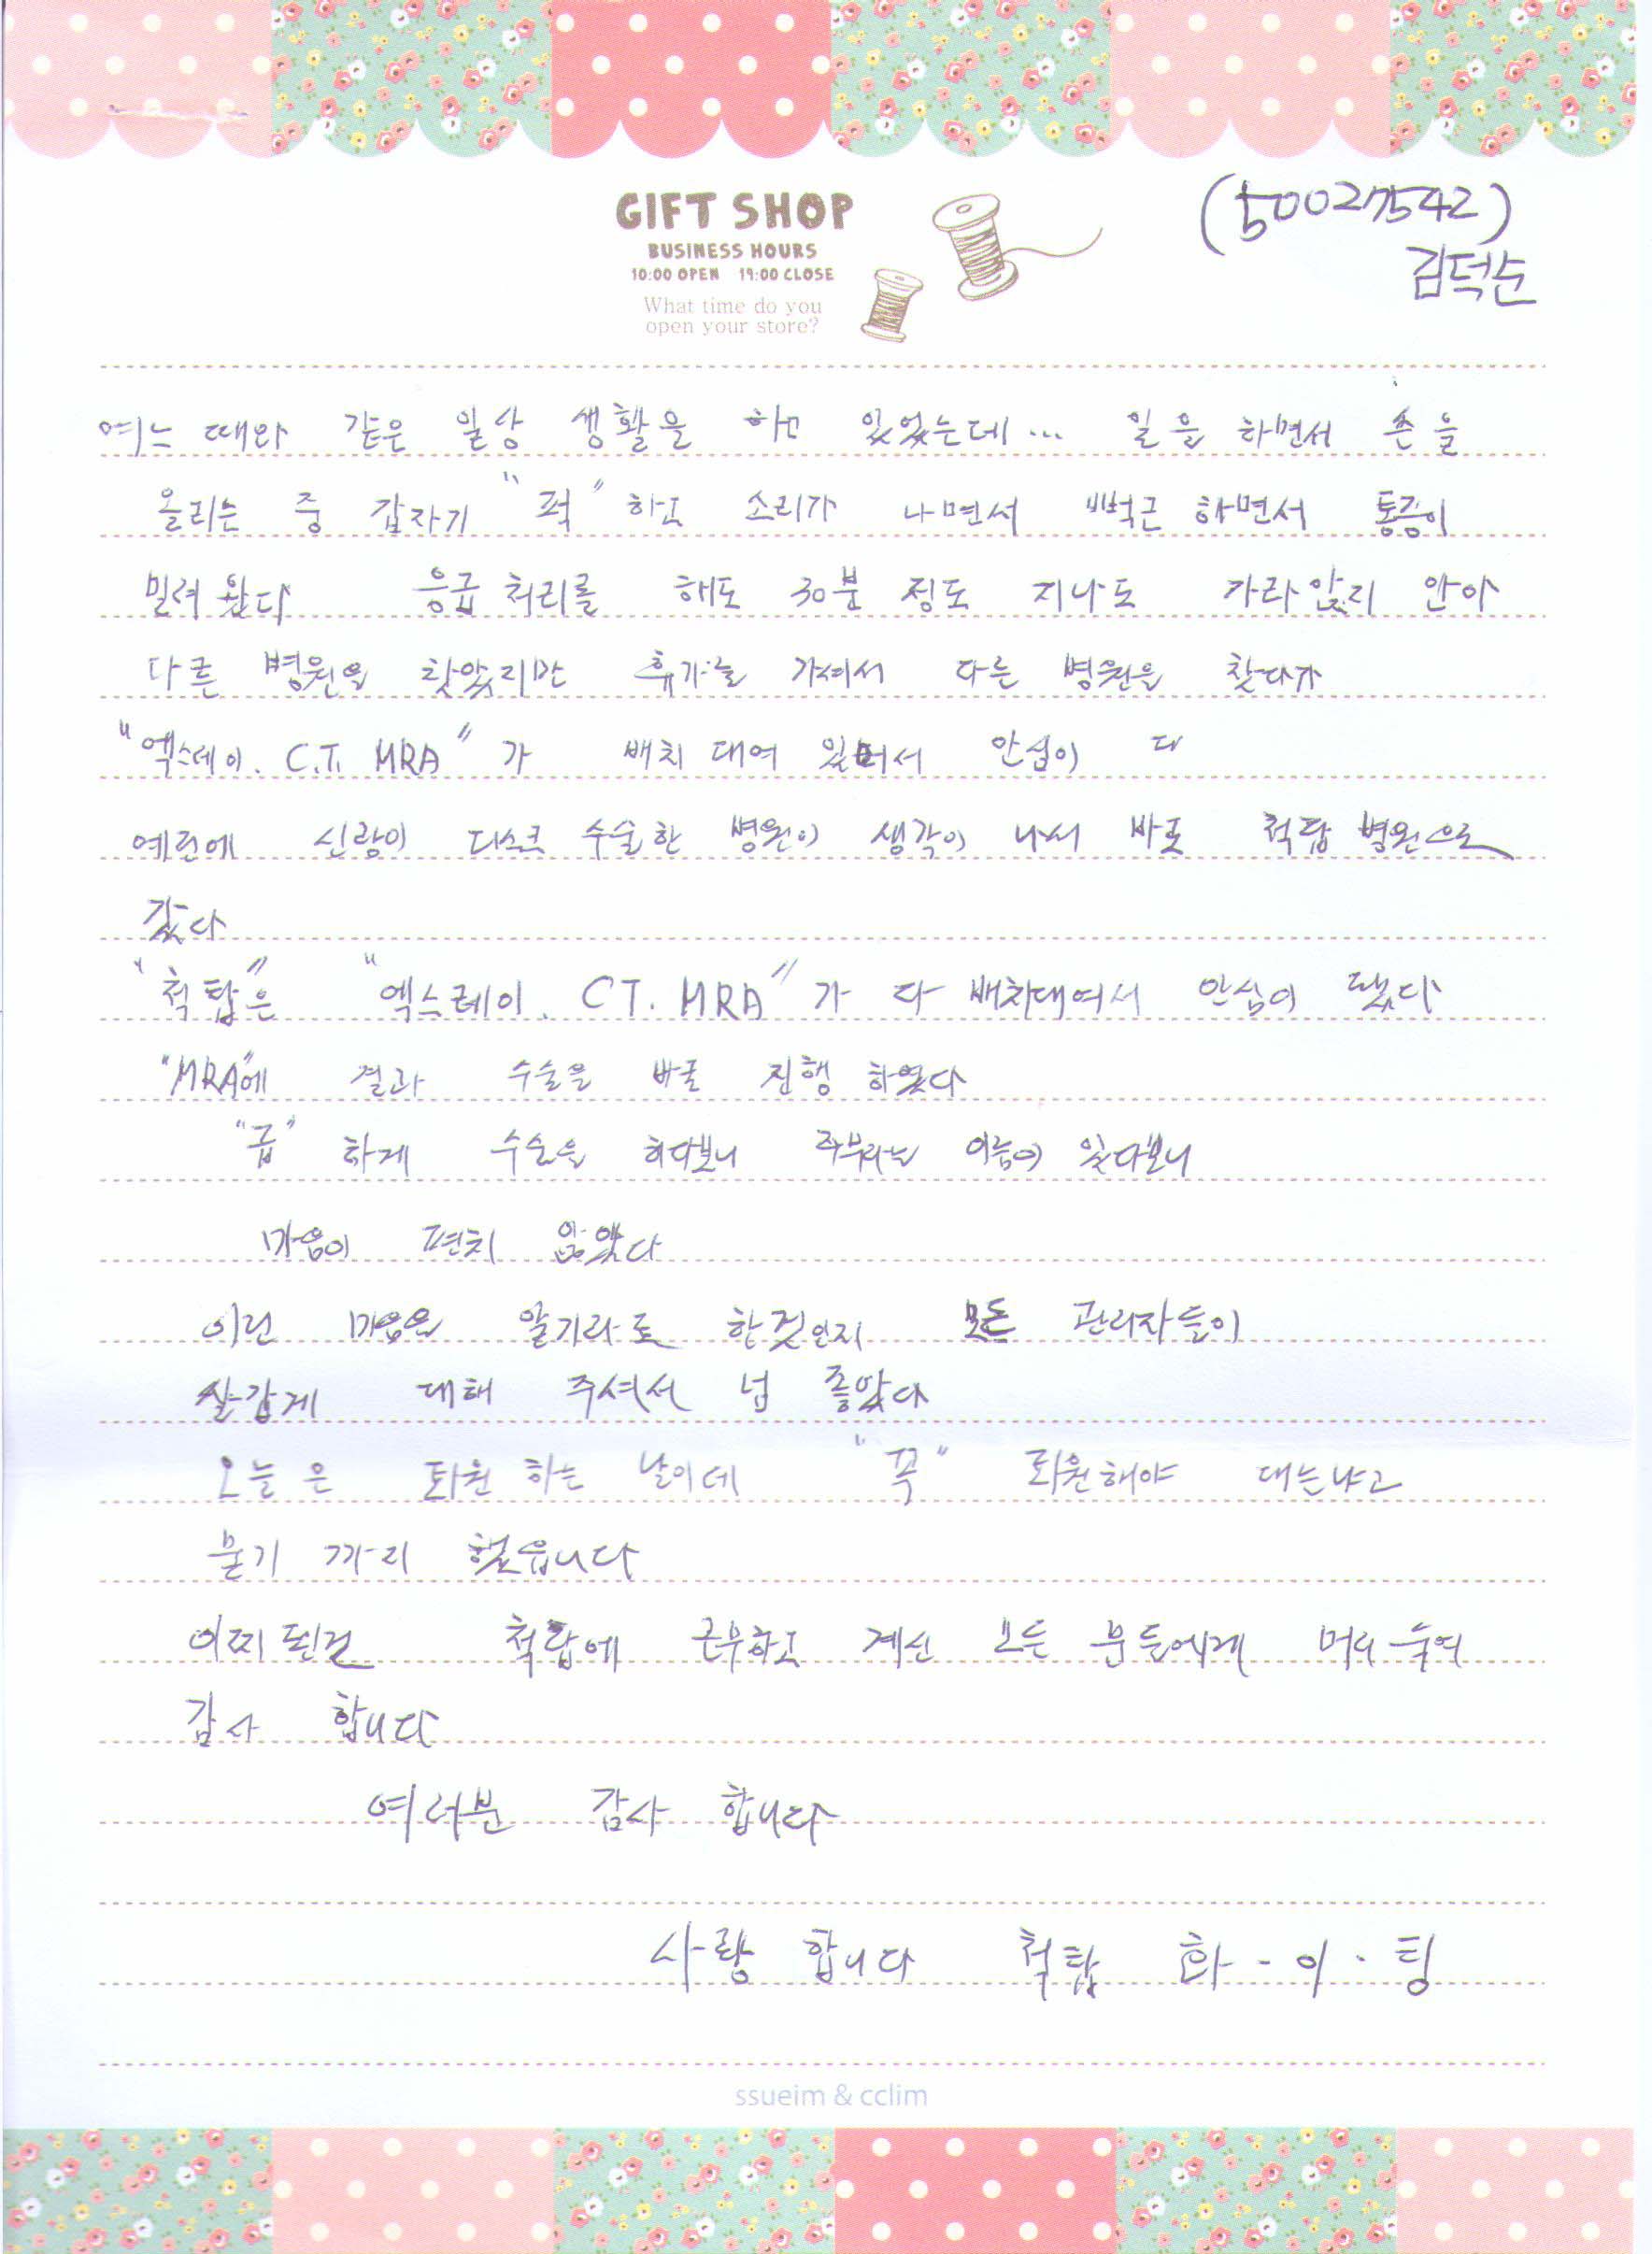 GIFT SHOP
BUSINESS HOURS
10:00 OPEN 19:00 CLOSE
What time do you
open your store?
(50027542)
김덕순
여느 때와 같은 일상 생활을 하고 있었는데... 일을 하면서 손을
올리는 중 갑자기 "퍽" 하고 소리가 나면서 뻐근 하면서 통증이
밀려 왔다 응급 처리를 해도 30분 정도 지나도 가라앉지 안아
다른 병원을 찾았지만 휴가를 가셔서 다른 병원을 찾다가
"엑스레이. C.T. MRA" 가 배치 대여 있어서 안심이 다
예전에 신랑이 디스크 수술한 병원이 생각이 나서 바로 척탑 병원으로
갔다
"척탑"은 "엑스레이. CT. MRA" 가 다 배치대여서 안심이 됐다
"MRA"에 결과 수술을 바로 진행 하였다
"급" 하게 수술을 하다보니 주부라는 이름이 있다보니
마음이 편치 않았다
이런 마음을 알기라도 한것인지 모든 관리자들이
살갑게 대해 주셔서 넘 좋았다
오늘은 퇴원 하는 날이데 "꼭" 퇴원해야 대는냐고
묻기 까지 했읍니다
어찌됀건 척탑에 근무하고 계신 모든 분들에게 머리 숙여
감사 합니다
여러분 감사 합니다
사랑 합니다 척탑 화-이·팅
ssueim & cclim